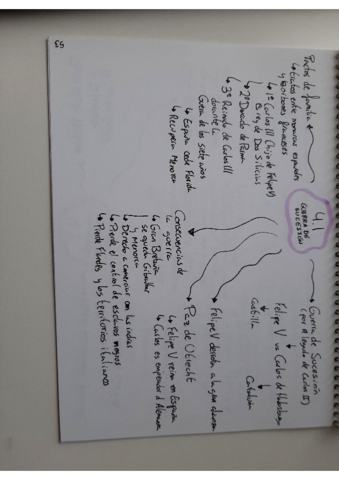 4.
GUERRA DE
SUCESIÓN
Guerra de Sucesión
(por el legado de Carlos II)
Felipe V vs Carlos de Habsburgo
Castilla
Cataluña
Felipe V derrota a la
Paz de Utrecht
↳ Felipe V reina en España
↳ Carlos es emperador d Alemania
Consecuencias de
la guerra
↳ Gran Bretaña
se queda Gibraltar
y Menorca
↳ Derecho a comerciar con las indias
↳ Pierde el control de esclavos negros
↳ Pierde Flandes y los territorios italianos
Pactos de familia
↳ Pactos entre monarcas españoles
y borbones franceses
↳ 1º Carlos III (hijo de Felipe V)
es rey de Dos Sicilias
↳ 2º Ducado de Parma
↳ 3º Reinado de Carlos III
durante la
Guerra de los siete años
↳ España cede Florida
↳ Recupera Menorca
53